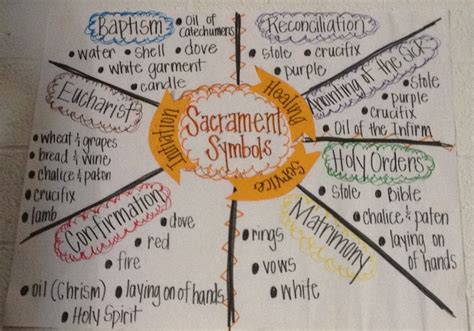 Sacrament
Symbols
Initiation
Healing
Service
Baptism
• oil of
catechumens
• water • shell • dove
• white garment
• candle
Reconciliation
• stole • crucifix
• purple
Anointing of the Sick
• stole
• purple
• crucifix
• Oil of the Infirm
Holy Orders
• stole • Bible
• chalice & paten
• laying on
of hands
Matrimony
• rings
• vows
• white
Confirmation
• dove
• red
• fire
• oil (Chrism) • laying on of hands
• Holy Spirit
Eucharist
• wheat & grapes
• bread & wine
• chalice & paten
• crucifix
• lamb